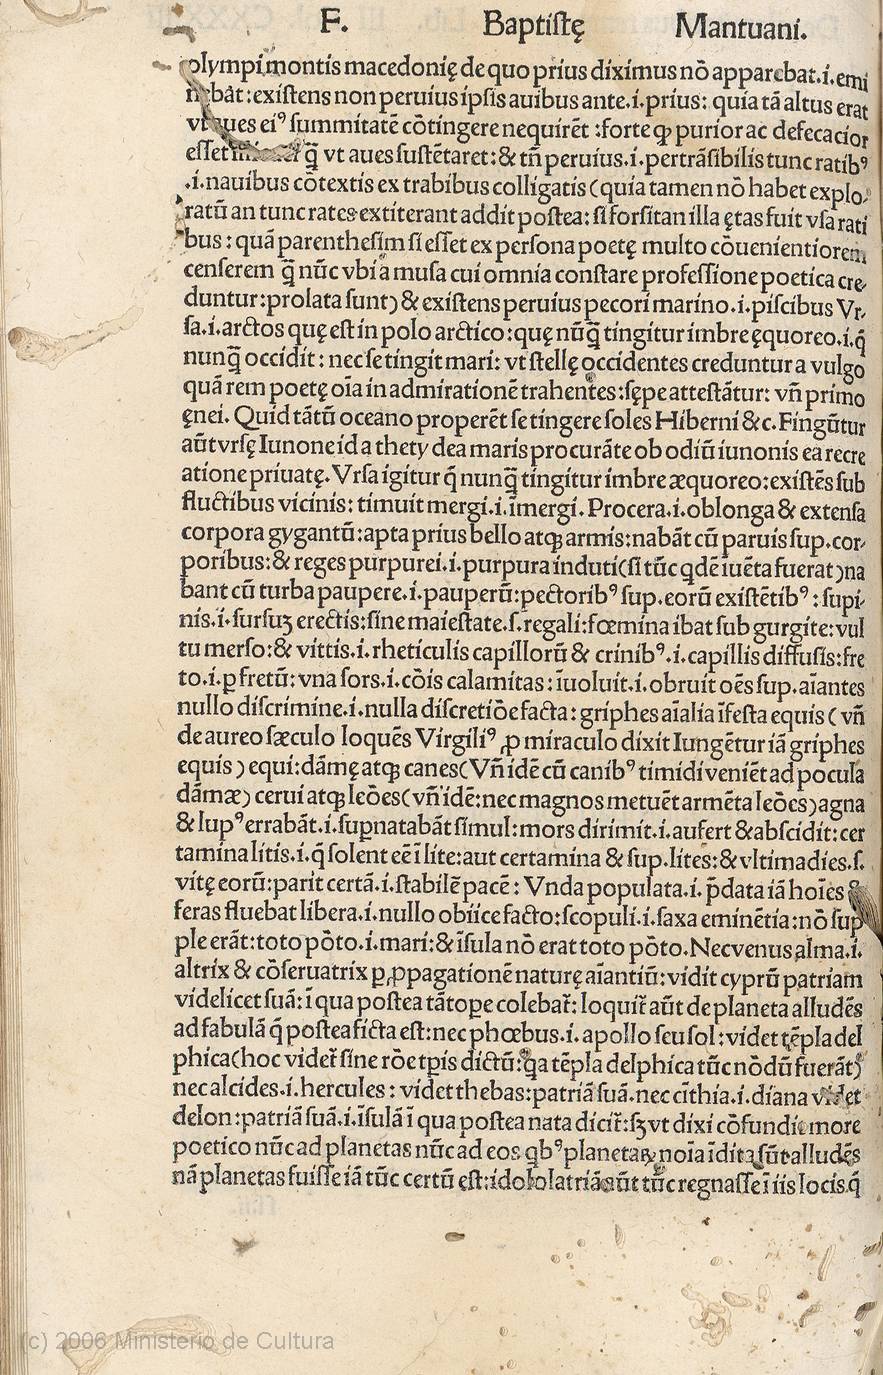 F. Baptistę Mantuani.
olympi montis macedonię de quo prius diximus nō apparebat.i.emi
nebat: existens non peruius ipsis auibus ante.i.prius: quia tā altus erat
vt aues eiꝰ summitatē cōtingere nequirēt: forte ꝙ purior ac defecacior
esset q̄ vt aues sustētaret: & tn̄ peruius.i.pertrāsibilis tunc ratibꝰ
.i.nauibus cōtextis ex trabibus colligatis (quia tamen nō habet explo-
ratū an tunc rates extiterant addit postea: si forsitan illa ętas fuit vsa rati
bus: quā parenthesim si esset ex persona poetę multo cōuenientiorem
censerem q̄ nūc vbi a musa cui omnia constare professione poetica cre-
duntur: prolata sunt) & existens peruius pecori marino.i.piscibus Vr-
sa.i.arctos quę est in polo arctico: quę nūq̄ tingitur imbre ęquoreo.i.q̄
nunq̄ occidit: nec se tingit mari: vt stellę occidentes creduntur a vulgo
quā rem poetę oīa in admirationē trahentes: sępe attestātur: vn̄ primo
ęnei. Quid tātū oceano properēt se tingere soles Hiberni &c. Fingūtur
aūt vrsę Iunone id a thety dea maris procurāte ob odiū iunonis ea recre
atione priuatę. Vrsa igitur q̄ nunq̄ tingitur imbre æquoreo: existēs sub
fluctibus vicinis: timuit mergi.i.īmergi. Procera.i.oblonga & extensa
corpora gygantū: apta prius bello atqꝫ armis: nabāt cū paruis sup.cor-
poribus: & reges purpurei.i.purpura induti (si tūc qdē iuēta fuerat) na
bant cū turba paupere.i.pauperū: pectoribꝰ sup.eorū existētibꝰ: supi-
nis.i.sursuꝫ erectis: sine maiestate.s.regali: fœmina ibat sub gurgite: vul
tu merso: & vittis.i.rheticulis capillorū & crinibꝰ.i.capillis diffusis: fre
to.i.ꝑ fretū: vna sors.i.cōis calamitas: īuoluit.i.obruit oēs sup.aīantes
nullo discrimine.i.nulla discretiōe facta: griphes aīalia īfesta equis (vn̄
de aureo sæculo loquēs Virgiliꝰ ꝓ miraculo dixit Iungētur iā griphes
equis) equi: dāmę atqꝫ canes (Vn̄ idē cū canibꝰ timidi veniēt ad pocula
dāmæ) cerui atqꝫ leōes (vn̄ idē: nec magnos metuēt armēta leōes) agna
& lupꝰ errabāt.i.supnatabāt simul: mors dirimit.i.aufert & abscidit: cer
tamina litis.i.q̄ solent eē ī lite: aut certamina & sup.lites: & vltima dies.s.
vitę eorū: parit certā.i.stabilē pacē: Vnda populata.i.p̄data iā hoīes &
feras fluebat libera.i.nullo obiice facto: scopuli.i.saxa eminētia: nō sup
ple erāt: toto pōto.i.mari: & īsula nō erat toto pōto. Nec venus alma.i.
altrix & cōseruatrix ꝑ ꝓpagationē naturę aīantiū: vidit cyprū patriam
videlicet suā: ī qua postea tātope colebat̄: loquit̄ aūt de planeta alludēs
ad fabulā q̄ postea ficta est: nec phœbus.i.apollo seu sol: videt tēpla del
phica (hoc videt̄ sine rōe tp̄is dictū: qa tēpla delphica tūc nōdū fuerāt)
nec alcides.i.hercules: videt thebas: patriā suā. nec cīthia.i.diana videt
delon: patriā suā.i.īsulā ī qua postea nata dicit̄: sꝫ vt dixi cōfundit more
poetico nūc ad planetas nūc ad eos qbꝰ planetaꝝ noīa īdita sūt alludēs
nā planetas fuisse iā tūc certū est: idololatriā aūt tūc regnasse ī iis locis q̄
(c) 2006 Ministerio de Cultura